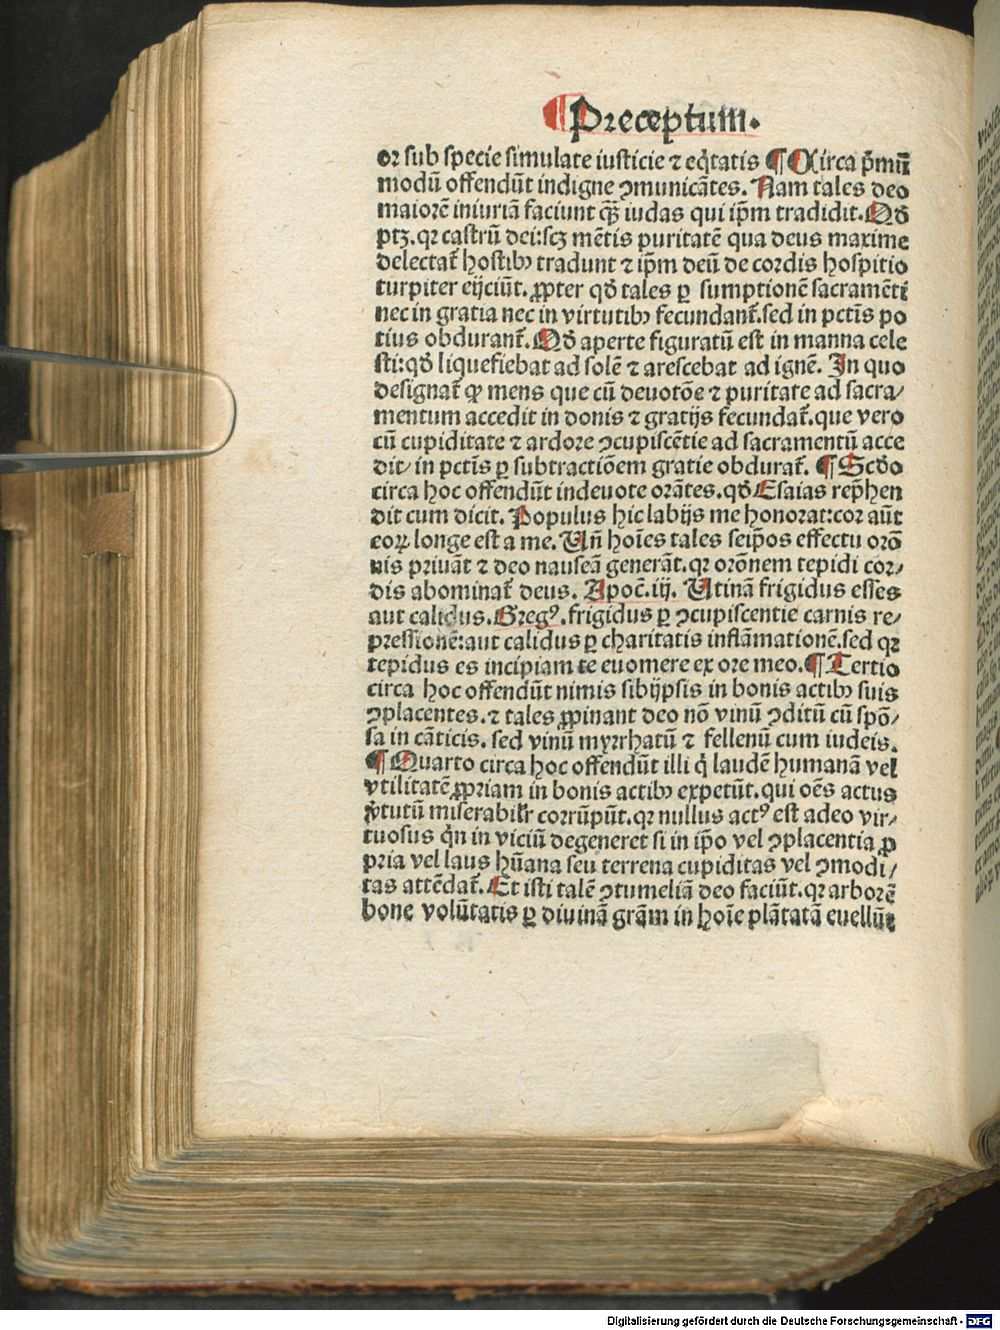 ¶Preceptum.
or sub specie simulate iusticie ⁊ eq̇tatis ¶ Circa p̄mū
modū offendūt indigne ꝯmunicātes. Nam tales deo
maiorē iniuriā faciunt qꝫ̄ iudas qui ip̄m tradidit. Qd̄
ptꝫ. qꝛ castrū dei: scꝫ mētis puritatē qua deus maxime
delectat᷑ hostibꝰ tradunt ⁊ ip̄m deū de cordis hospitio
turpiter eijciūt. ꝓpter qd̄ tales ꝑ sumptionē sacramēti
nec in gratia nec in virtutibꝰ fecundant᷑. sed in pctīs po
tius obdurant᷑. Qd̄ aperte figuratū est in manna cele
sti: qd̄ liquefiebat ad solē ⁊ arescebat ad ignē. In quo
designat᷑ ꝙ mens que cū deuotōe ⁊ puritate ad sacra/
mentum accedit in donis ⁊ gratijs fecundat᷑. que vero
cū cupiditate ⁊ ardore ꝯcupiscētie ad sacramentū acce
dit/ in pctīs ꝑ subtractiōem gratie obdurat᷑. ¶ Scd̄o
circa hoc offendūt indeuote orātes. qd̄ Esaias rep̄hen
dit cum dicit. Populus hic labijs me honorat: cor aūt
eoꝝ longe est a me. Un̄ hoīes tales seip̄os effectu orō
nis priuāt ⁊ deo nauseā generāt. qꝛ orōnem tepidi cor/
dis abominat᷑ deus. Apoc̄. iij. Utinā frigidus esses
aut calidus. Gregꝰ. frigidus ꝑ ꝯcupiscentie carnis re/
pressionē: aut calidus ꝑ charitatis inflāmationē. sed qꝛ
tepidus es incipiam te euomere ex ore meo. ¶ Tertio
circa hoc offendūt nimis sibijpsis in bonis actibꝰ suis
ꝯplacentes. ⁊ tales ꝓpinant deo nō vinū ꝯditū cū spō/
sa in cāticis. sed vinū myrrhatū ⁊ fellenū cum iudeis.
¶ Quarto circa hoc offendūt illi q̇ laudē humanā vel
vtilitatē ꝓpriam in bonis actibꝰ expetūt. qui oēs actus
v̓tutū miserabilr̄ corrūpūt. qꝛ nullus actꝰ est adeo vir/
tuosus qn̄ in viciū degeneret si in ip̄o vel ꝯplacentia ꝓ
pria vel laus hūana seu terrena cupiditas vel ꝯmodi/
tas attēdat᷑. Et isti talē ꝯtumeliā deo faciūt. qꝛ arborē
bone volūtatis ꝑ diuinā grām in hoīe plātatā euellūt
Digitalisierung gefördert durch die Deutsche Forschungsgemeinschaft - DFG